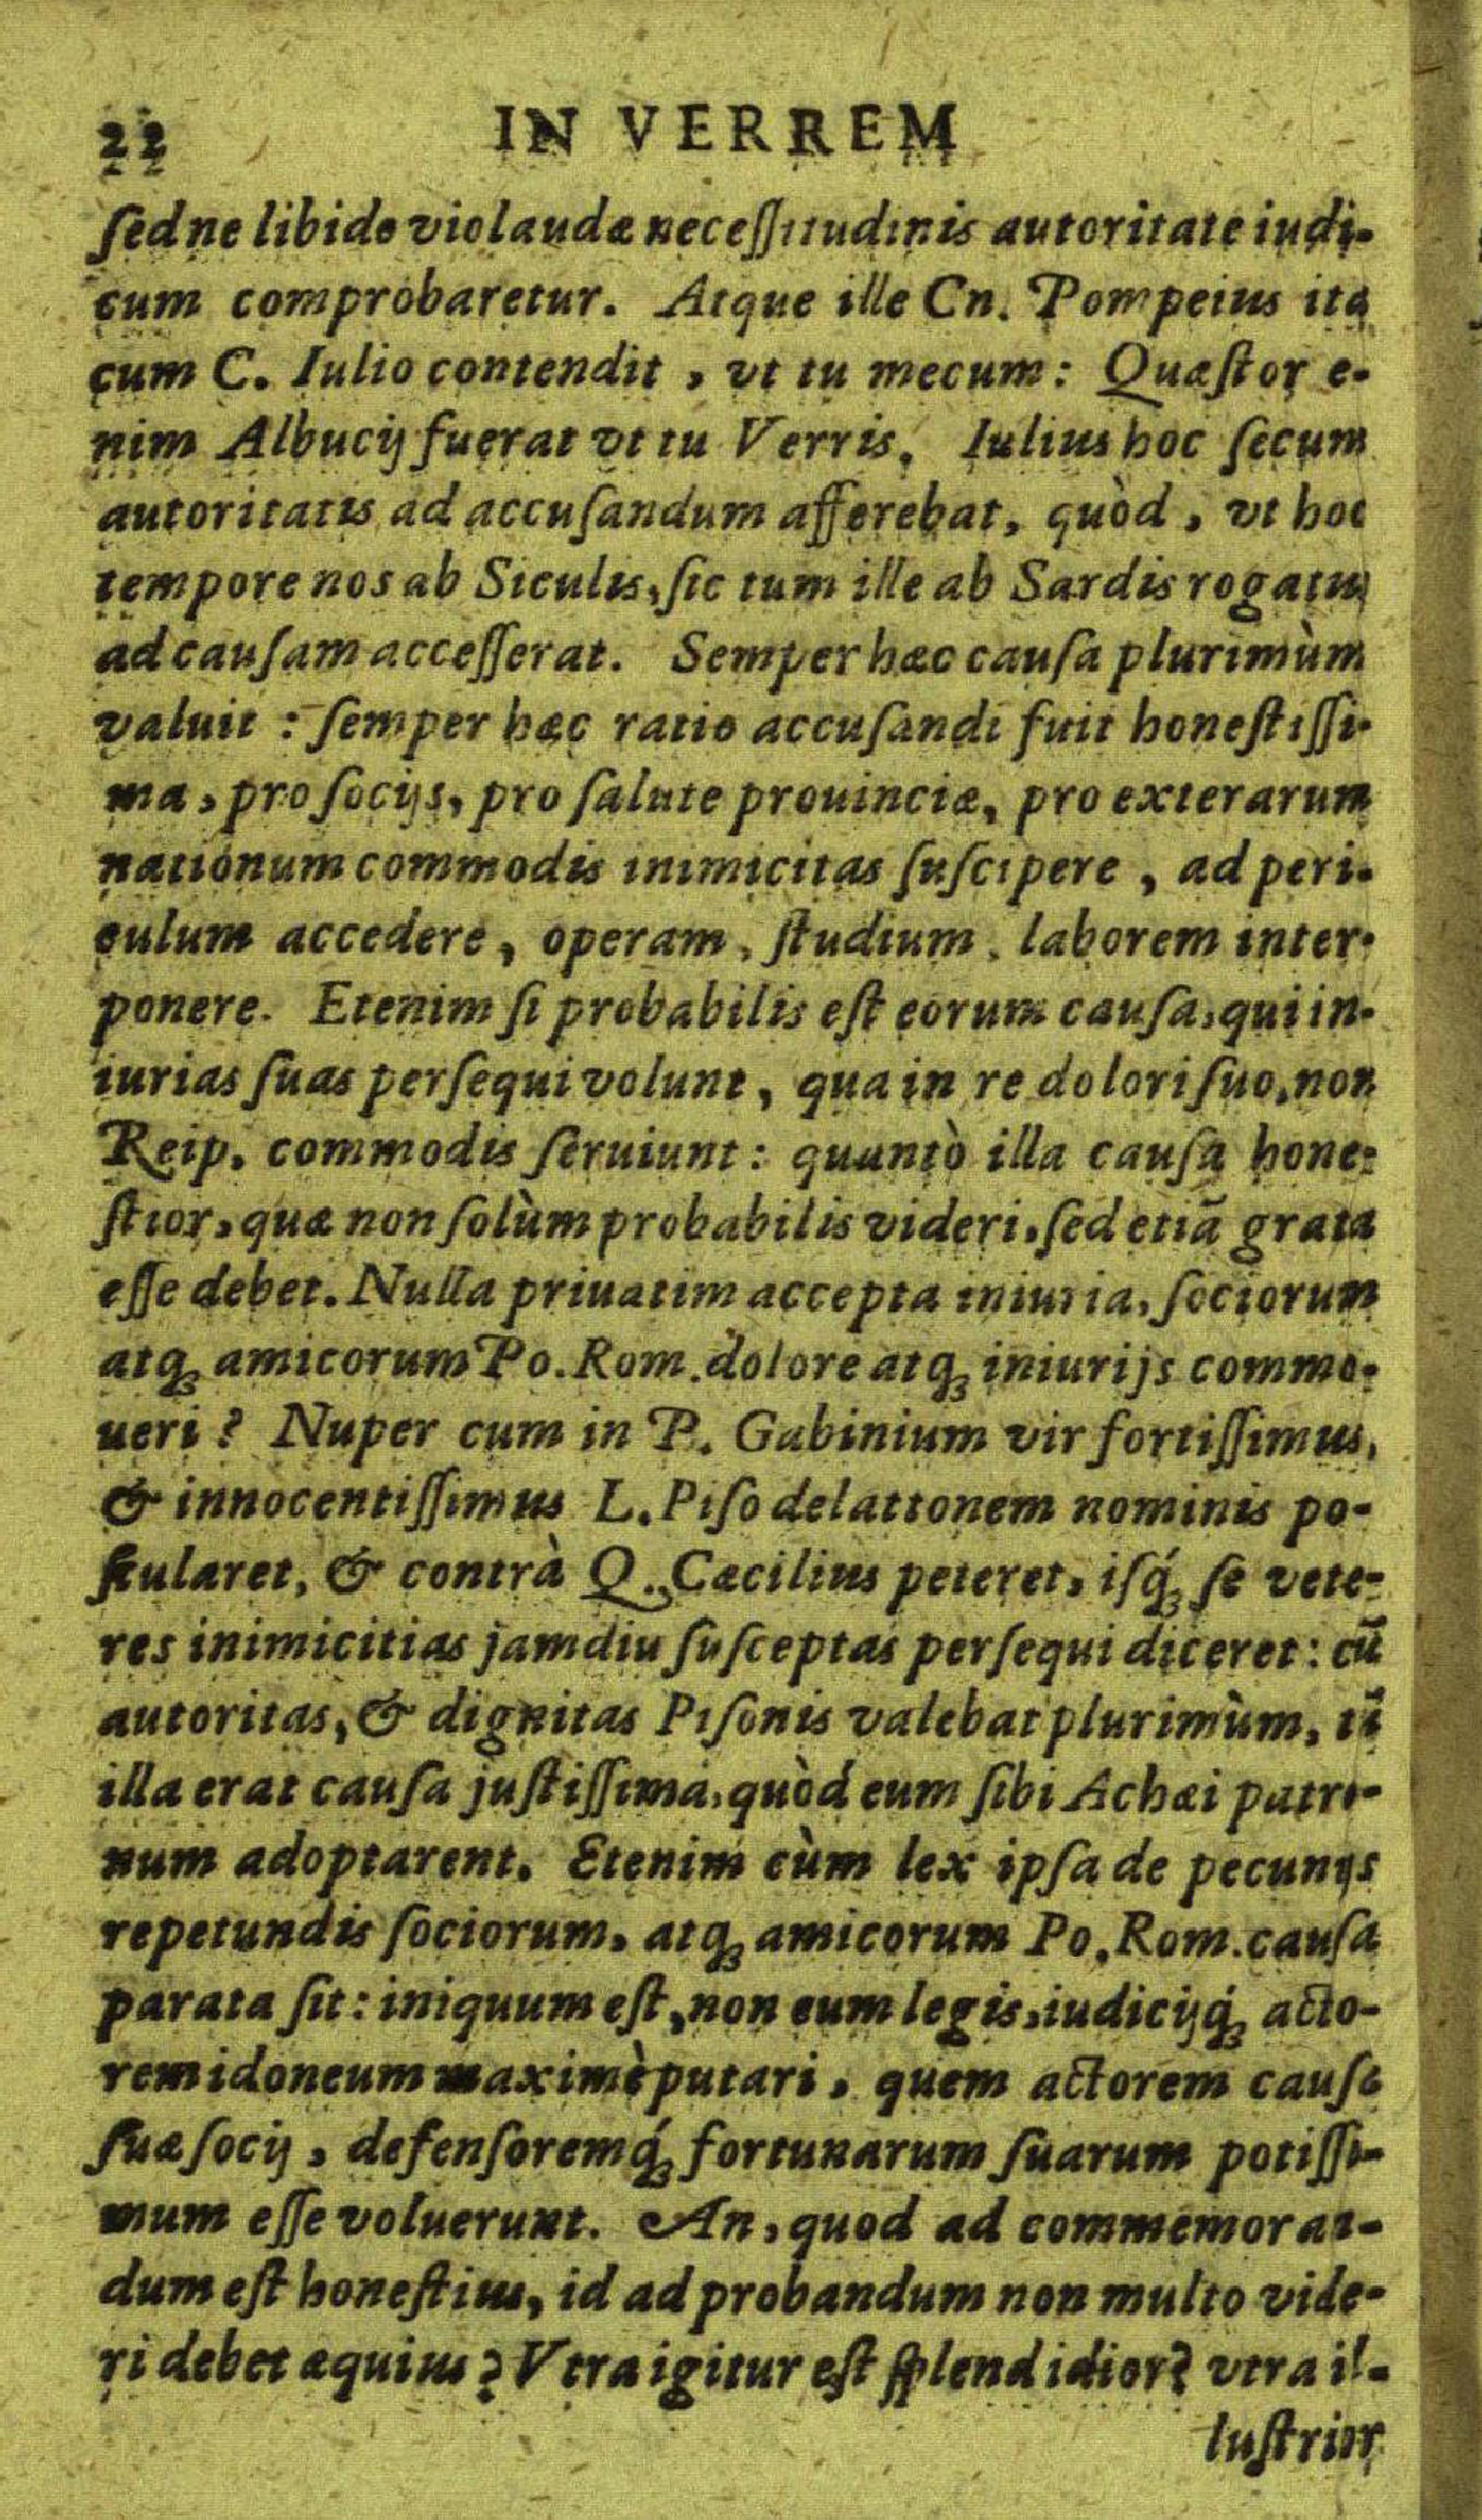 22 IN VERREM
ſed ne libido violandæ neceſſitudinis autoritate iudi-
cum comprobaretur. Atque ille Cn. Pompeius ita
cum C. Iulio contendit, vt tu mecum: Quæſtor e-
nim Albucij fuerat vt tu Verris. Iulius hoc ſecum
autoritatis ad accuſandum afferebat, quòd, vt hoc
tempore nos ab Siculis, ſic tum ille ab Sardis rogatus
ad cauſam acceſſerat. Semper hæc cauſa plurimùm
valuit: ſemper hæc ratio accuſandi fuit honeſtiſſi-
ma, pro ſocijs, pro ſalute prouinciæ, pro exterarum
nationum commodis inimicitas ſuſcipere, ad peri-
culum accedere, operam, ſtudium, laborem inter-
ponere. Etenim ſi probabilis eſt eorum cauſa, qui in-
iurias ſuas perſequi volunt, qua in re dolori ſuo, non
Reip. commodis ſeruiunt: quantò illa cauſa hone-
ſtior, quæ non ſolùm probabilis videri, ſed etiã grata
eſſe debet. Nulla priuatim accepta iniuria, ſociorum
atq; amicorum Po. Rom. dolore atq; iniurijs commo-
ueri? Nuper cum in P. Gabinium vir fortiſſimus,
& innocentiſſimus L. Piſo delationem nominis po-
ſtularet, & contrà Q. Cæcilius peteret, iſq́; ſe vete-
res inimicitias jamdiu ſuſceptas perſequi diceret: cũ
autoritas, & dignitas Piſonis valebat plurimùm, tũ
illa erat cauſa juſtiſſima, quòd eum ſibi Achæi patro-
num adoptarent. Etenim cùm lex ipſa de pecunijs
repetundis ſociorum, atq; amicorum Po. Rom. cauſa
parata ſit: iniquum eſt, non eum legis, iudicijq́; acto-
rem idoneum maximè putari, quem actorem cauſæ
ſuæ ſocij, defenſoremq́; fortunarum ſuarum potiſſi-
mum eſſe voluerunt. An, quod ad commemoran-
dum eſt honeſtius, id ad probandum non multo vide-
ri debet æquius? Vtra igitur eſt ſplendidior? vtra il-
luſtrior